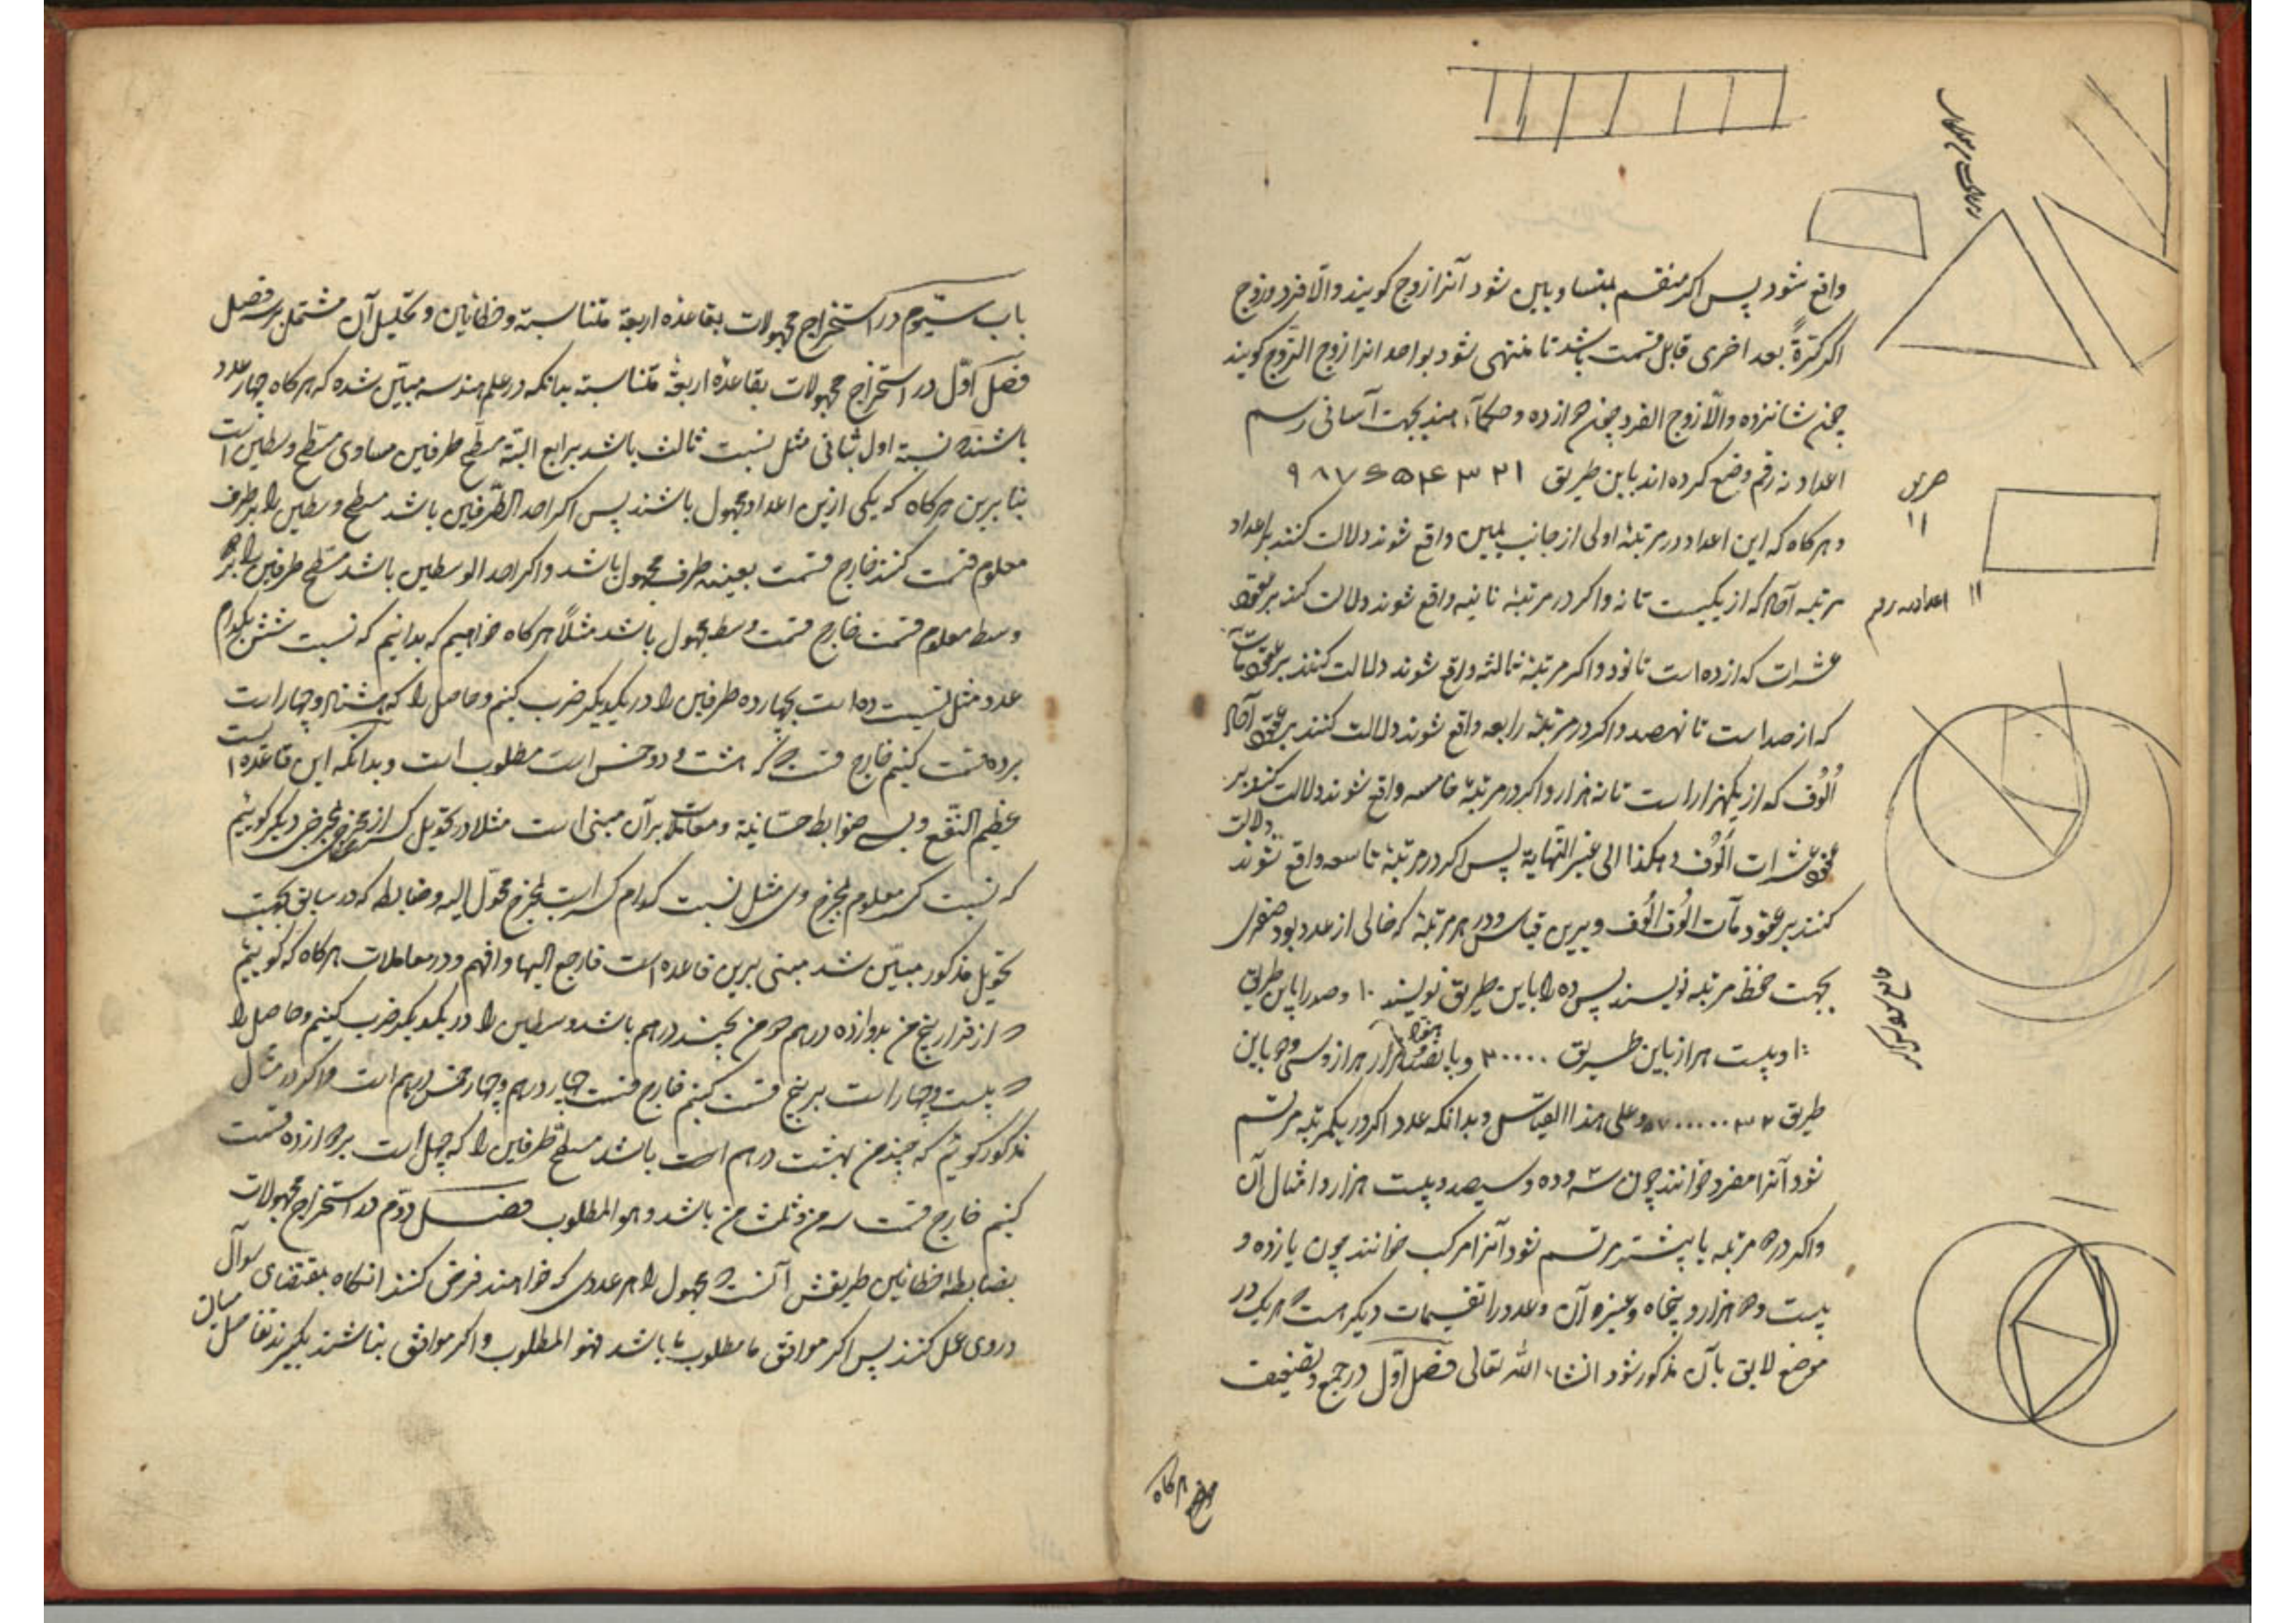 واقع شود پس اگر منقسم بمتساویین شود آنرا زوج گویند والّا فرد و زوج
اگر کرّةً بعد اخری قابل قسمت باشد تا منتهی شود بواحد انرا زوج الزّوج گویند
چون شانزده والّا زوج الفرد چون دوازده و حکماء هند بجهت آسانی رسم
اعداد نه رقم وضع کرده اند باین طریق ۱ ۲ ۳ ۴ ۵ ۶ ۷ ۸ ۹
و هرگاه که این اعداد در مرتبهٔ اولی از جانب یمین واقع شوند دلالت کنند بر اعداد
مرتبه آحاد که از یکیست تا نه واگر در مرتبهٔ ثانیه واقع شوند دلالت کنند بر عقود
عشرات که از ده است تا نود واگر مرتبهٔ ثالثه واقع شوند دلالت کنند بر عقود مآت
که از صد است تا نهصد واگر در مرتبهٔ رابعه واقع شوند دلالت کنند بر عقود آحاد
اُلُوف که از یکهزار است تا نه هزار واگر در مرتبهٔ خامسه واقع شوند دلالت کنند بر
عقود عشرات اُلُوف و هکذا الی غیر النّهایة پس اگر در مرتبهٔ تاسعه واقع شوند دلالت
کنند بر عقود مآت اُلُوف اُلُوف و برین قیاس و در هر مرتبهٔ که خالی از عدد بود صفری
بجهت حفظ مرتبه نویسند پس ده را باین طریق نویسند ۱۰ و صد را باین طریق
۱۰۰ و بیست هزار باین طریق ۲۰۰۰۰ و پانصد هزار هزار و سی و دو باین
طریق ۳۲ و علی هذا القیاس و بدانکه عدد اگر در یکمرتبه مرتسم
شود آنرا مفرد خوانند چون سه و ده و سیصد و بیست هزار و امثال آن
واگر در دو مرتبه یا بیشتر مرتسم شود آنرا مرکب خوانند چون یازده و
بیست و دو هزار و پنجاه و غیره آن و عدد را تقسیمات دیگر است که هر یک در
موضع لایق بآن مذکور شود انشاء الله تعالی فصل اوّل در جمع و تضعیف
اعداد نه رقم
۱۱
باب سیّوم در استخراج مجهولات بقاعدهٔ اربعهٔ متناسبة و خطائین و تحلیل آن مشتملبر سه فصل
فصل اوّل در استخراج مجهولات بقاعدهٔ اربعهٔ متناسبة بدانکه در علم هندسه مبیّن شده که هرگاه چهار عدد
باشند که نسبة اول بثانی مثل نسبت ثالث باشد برابع البتّة مسطّح طرفین مساوی مسطّح وسطین است
بنابرین هرگاه که یکی ازین اعداد مجهول باشند پس اگر احد الطّرفین باشد مسطّح وسطین را بر طرف
معلوم قسمت کنند خارج قسمت بعینه طرف مجهول باشد واگر احد الوسطین باشد مسطّح طرفین را بر
وسط معلوم قسمت خارج قسمت وسط مجهول باشد مثلاً هرگاه خواهیم که بدانیم که نسبت شش بکدام
عدد مثل نسبت ده است بچهارده طرفین را در یکدیگر ضرب کنیم و حاصل را که هشتاد و چهار است
بر ده قسمت کنیم خارج قسمت که هشت و دو خمس است مطلوب است و بدانکه این قاعده است
عظیم النّفع و بسی ضوابط حسابیّة و معاملات برآن مبنی است مثلا در تحویل کسر از مخرجی بمخرجی دیگر گوئیم
که نسبت کسر معلوم بمخرج وی مثل نسبت کدام کسر است بمخرج محوّل الیه و ضابطه که در سابق بجهت
تحویل مذکور مبیّن شد مبنی برین قاعده است فارجع الیها وافهم و در معاملات هرگاه که گوییم
که از قرار پنج من بدوازده درهم دو من بچند درهم باشد وسطین را در یکدیگر ضرب کنیم و حاصل را
که بیست و چهار است بر پنج قسمت کنیم خارج قسمت چهار درهم و چهار خمس درهم است و اگر در مثال
مذکور گوئیم که چند من بهشت درهم است باشد مسطّح طرفین را که چهل است بر دوازده قسمت
کنیم خارج قسمت سه من و ثلث من باشد و هو المطلوب فصل دوّم در استخراج مجهولات
بضابطه خطائین طریقش آنست که مجهول را هر عددی که خواهند فرض کنند آنگاه بمقتضای سوآل
در وی عمل کنند پس اگر موافق ما مطلوب باشد فهو المطلوب واگر موافق نباشند بگیرند تفاضل میان